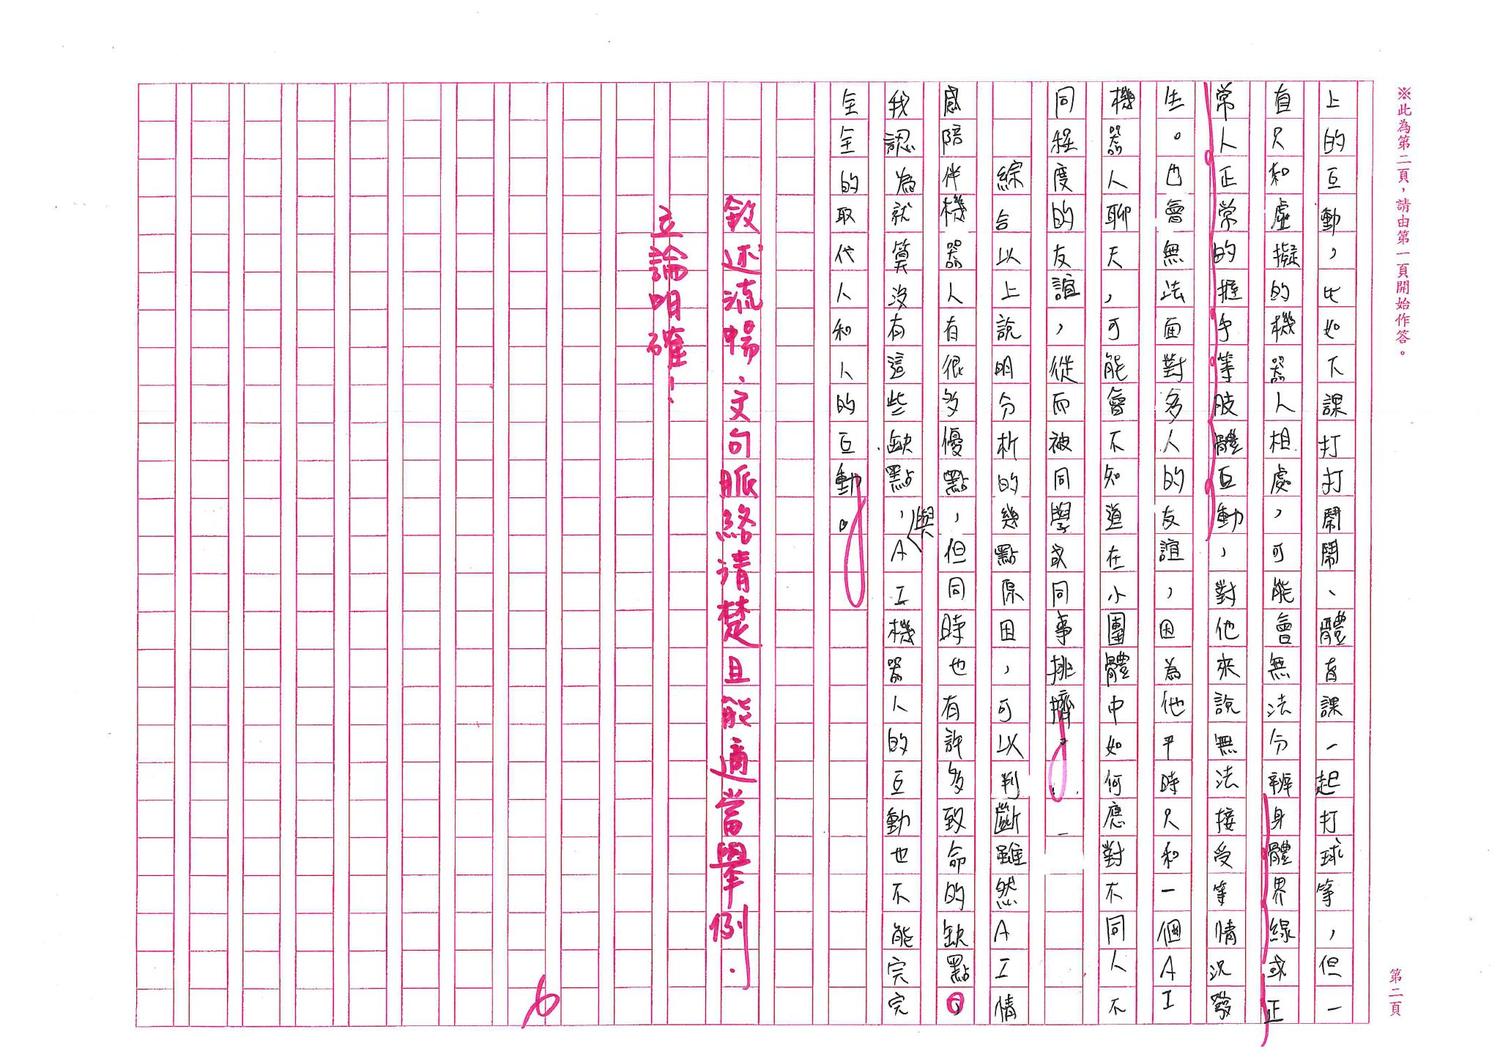 ※此為第二頁，請由第一頁開始作答。
第二頁
上的互動，比如下課打打鬧鬧、體育課一起打球等，但一
直只和虛擬的機器人相處，可能會無法分辨身體界線或正
常人正常的握手等肢體互動，對他來說無法接受等情況發
生。也會無法面對多人的友誼，因為他平時只和一個AI
機器人聊天，可能會不知道在小團體中如何應對不同人不
同程度的友誼，從而被同學或同事排擠。
綜合以上說明分析的幾點原因，可以判斷雖然AI情
感陪伴機器人有很多優點，但同時也有許多致命的缺點，
我認為就算沒有這些缺點，與AI機器人的互動也不能完完
全全的取代人和人的互動。
敘述流暢、文句脈絡清楚且能適當舉例.
立論明確！
6